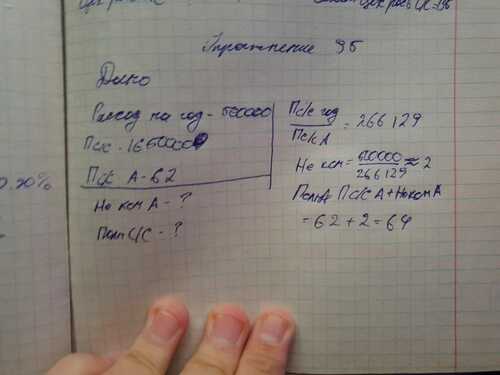 Упражнение 95
Дано
Расход на год - 500000
Пс/с - 16500000
Пс/с А - 62
Не ком А - ?
Полн С/С - ?
Пс/с год / Пс/с А = 266 129
Не ком = 500000 / 266 129 ≈ 2
Полн А Пс/с А + Неком А
= 62 + 2 = 64
0.20%